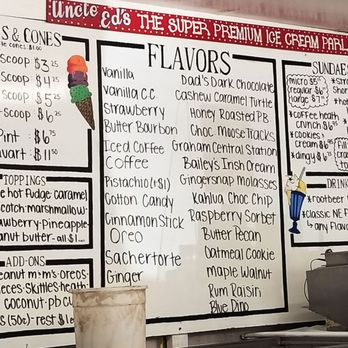 Uncle Ed's THE SUPER PREMIUM ICE CREAM PARL
S & CONES
te cones $1.00
Scoop $3.25
Scoop $4.25
Scoop $5.25
Scoop $6.25
Pint - $6.75
uart - $11.50
TOPPINGS
e hot fudge Caramel
scotch marshmallow
rawberry-Pineapple
anut butter-all $1
ADD-ONS
eanut m+m's-oreos-
eces-Skittles-heath
coconut-pb cu
s (50¢)-rest $1
FLAVORS
Vanilla
Vanilla C.C.
Strawberry
Butter Bourbon
Iced Coffee
Coffee
Pistachio (+$1)
Cotton Candy
Cinnamon Stick
Oreo
Sachertorte
Ginger
Dad's Dark Chocolate
Cashew Caramel Turtle
Honey Roasted P.B.
Choc Moose Tracks
Graham Central Station
Bailey's Irish Cream
Gingersnap Molasses
Kahlua Choc Chip
Raspberry Sorbet
Butter Pecan
Oatmeal Cookie
Maple Walnut
Rum Raisin
Blue Dino
SUNDAES
micro $5
regular $6
large $7
• coffee heath
crunch $6
• cookies
cream $6
• dingy $6
DRINK
• Classic NE F
↳ any Flavo